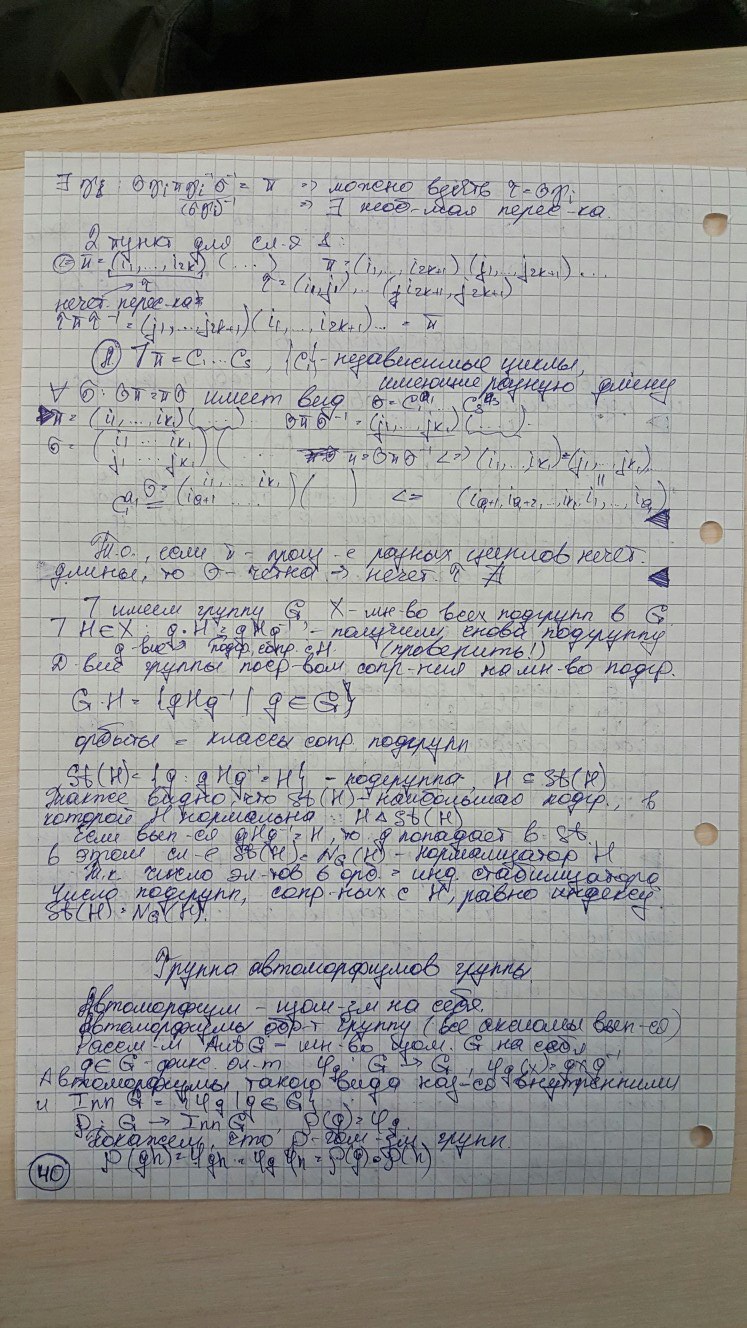 ∃ γi : σγiπγi⁻¹σ⁻¹ = π ⇒ можно взять τ = σγi
(σγi)⁻¹ ⇒ ∃ необ-мая перес-ка.
2 пункт для сл-я A:
π = (i1,...,i2k) (...) π = (i1,...,i2k+1) (j1,...,j2k+1) ...
τ τ = (i1,j1)...(i2k+1, j2k+1)
нечет. перес-ка
τπτ⁻¹ = (j1,...,j2k+1)(i1,...,i2k+1)... = π
П π = C1...Cs, {Ci} - независимые циклы,
имеющие разную длину
∀ σ: σπ = πσ имеет вид σ = C1^a1 ... Cs^as
π = (i1,...,ik1)(...) σπσ⁻¹ = (j1,...,jk1)(...)
σ = (i1 ... ik1)(
j1 ... jk1 π = σπσ⁻¹ <=> (i1,...,ik1) = (j1,...,jk1)
C1^a1 = σ = (i1, ... ik1)( ) <= (ia1+1, ia1+2,...,ik1, i1,...,ia1)
ia1+1 ...
Т.о., если π - произ-е разных циклов нечет.
длины, то σ - четна ⇒ нечет. τ ∄
Т имеем группу G, X - мн-во всех подгрупп в G
Т H ∈ X : g·H = gHg⁻¹ - получили снова подгруппу
g-вие подгр., сопр. с H (проверить!)
Д-вие группы поср-вом сопр-ния на мн-во подгр.
G·H = {gHg⁻¹ | g ∈ G}
орбиты = классы сопр. подгрупп
St(H) = {g : gHg⁻¹ = H} - подгруппа, H ⊆ St(H)
Также видно, что St(H) - наибольшая подгр., в
которой H нормальна : H ⊲ St(H)
Если вып-ся gHg⁻¹ = H, то g попадает в St.
В этом сл-е St(H) = NG(H) - нормализатор H
Т.к. число эл-тов в орб. = инд. стабилизатора
Число подгрупп, сопр-ных с H, равно индексу
St(H) = NG(H).
Группа автоморфизмов группы
Автоморфизм - изом-зм на себя.
Автоморфизмы обр-т группу (все аксиомы вып-ся)
Рассм-м Aut G - мн-во изом. G на себя
g ∈ G - фикс. эл-т φg : G → G, φg(x) = gxg⁻¹
Автоморфизмы такого вида наз-ся внутренними
и Inn G = {φg | g ∈ G}
ρ : G → Inn G, ρ(g) = φg.
Докажем, что ρ - гом-зм групп.
ρ(gh) = φgh = φg φh = ρ(g)∘ρ(h)
40